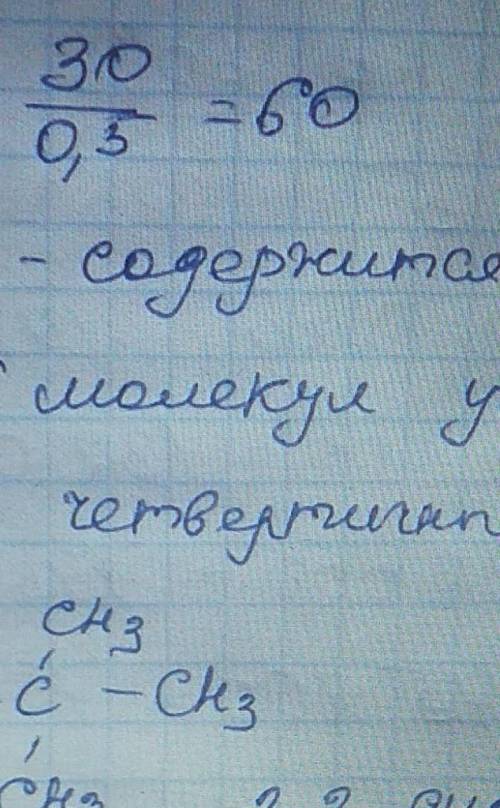 30
0,5 = 60
- содержится
молекул у
четвертичн
CH3
C - CH3
CH3 2 2